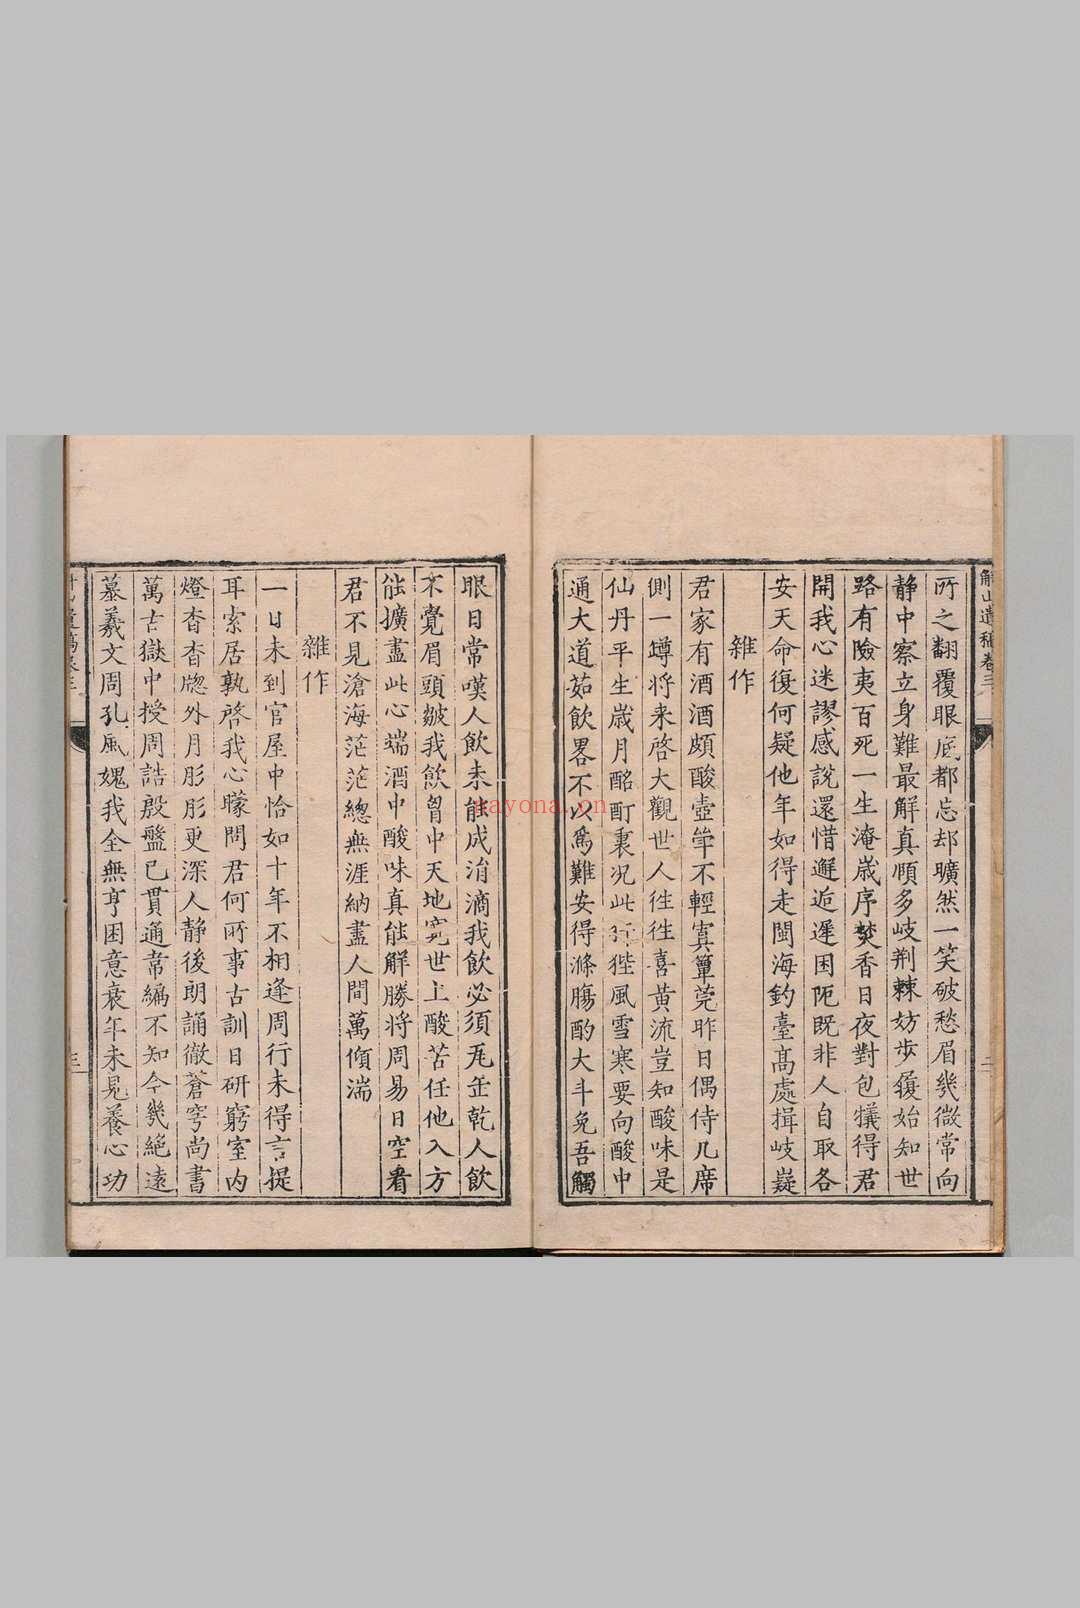 解山遺稿卷三
所之翻覆眼底都忘却曠然一笑破愁眉幾微常向
靜中察立身難最解真順多岐荆棘妨步履始知世
路有險夷百死一生淹歲序焚香日夜對包犠得君
開我心迷謬感說還惜邂逅遲困阨既非人自取各
安天命復何疑他年如得走閩海釣臺高處揖岐嶷
雜作
君家有酒酒頗酸壺簞不輕寘簟莞昨日偶侍几席
側一罇將来啓大觀世人徃徃喜黃流豈知酸味是
仙丹平生歲月酩酊裏况此狴風雪寒要向酸中
通大道茹飲畧不以爲難安得滌腸酌大斗免吾觸
眼日常嘆人飲未能成涓滴我飲必須瓦缶乾人飲
不覺眉頭皺我飲胷中天地寛世上酸苦任他入方
能擴盡此心端酒中酸味真能解勝將周易日空看
君不見滄海茫茫總無涯納盡人間萬傾湍
雜作
一日未到官屋中恰如十年不相逢周行未得言提
耳索居孰啓我心矇問君何所事古訓日研窮室内
燈杳杳牕外月彤彤更深人静後朗誦徹蒼穹尚書
萬古嶽中授周誥殷盤已貫通常編不知今幾絕遠
慕羲文周孔風媿我全無亨困意衰年未見養心功
三
kayona.cn